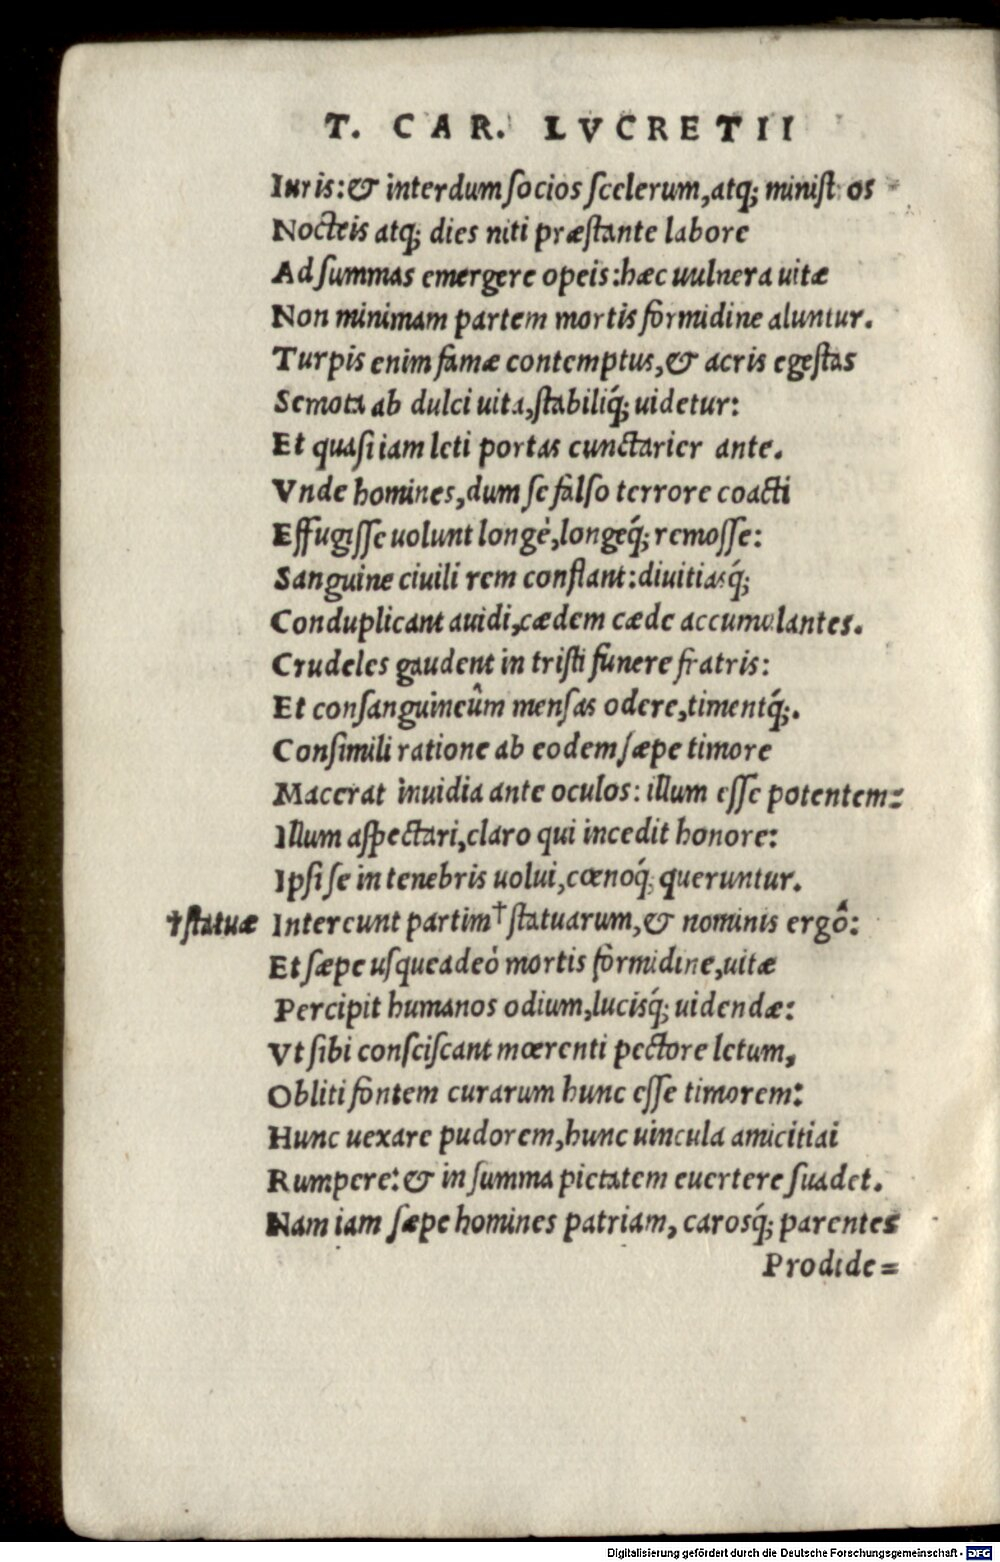 T. CAR. LVCRETII
Iuris: & interdum ſocios ſcelerum, atq; miniſt os
Nocteis atq; dies niti præſtante labore
Ad ſummas emergere opeis: hæc uulnera uitæ
Non minimam partem mortis formidine aluntur.
Turpis enim famæ contemptus, & acris egeſtas
Semota ab dulci uita, ſtabiliq́; uidetur:
Et quaſi iam leti portas cunctarier ante.
Vnde homines, dum ſe falſo terrore coacti
Effugiſſe uolunt longè, longeq́; remoſſe:
Sanguine ciuili rem conflant: diuitiasq́;
Conduplicant auidi, cædem cæde accumulantes.
Crudeles gaudent in triſti funere fratris:
Et conſanguineûm menſas odere, timentq́;.
Conſimili ratione ab eodem ſæpe timore
Macerat inuidia ante oculos: illum eſſe potentem:
Illum aſpectari, claro qui incedit honore:
Ipſi ſe in tenebris uolui, cœnoq́; queruntur.
†ſtatuæ Intereunt partim †ſtatuarum, & nominis ergô:
Et ſæpe uſqueadeò mortis formidine, uitæ
Percipit humanos odium, lucisq́; uidendæ:
Vt ſibi conſciſcant mœrenti pectore letum,
Obliti fontem curarum hunc eſſe timorem:
Hunc uexare pudorem, hunc uincula amicitiai
Rumpere: & in ſumma pietatem euertere ſuadet.
Nam iam ſæpe homines patriam, carosq́; parentes
Prodide=
Digitalisierung gefördert durch die Deutsche Forschungsgemeinschaft - DFG